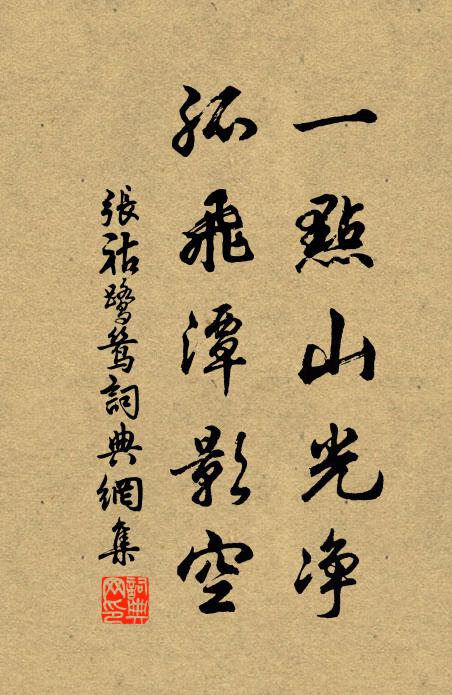 一點山光净
孤飛潭影空
張祜鷺鷥詞典網集
詞典網印